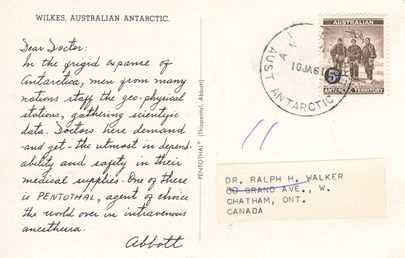 WILKES, AUSTRALIAN ANTARCTIC.
Dear Doctor:
In the frigid expanse of
Antarctica, men from many
nations staff the geo-physical
stations, gathering scientific
data. Doctors here demand
-and get- the utmost in depend-
ability and safety in their
medical supplies. One of these
is PENTOTHAL, agent of choice
the world over in intravenous
anesthesia.
Abbott
PENTOTHAL® (Thiopental, Abbott)
AUST ANTARCTIC
10JA61
AUSTRALIAN
5D
ANTARCTIC TERRITORY
DR. RALPH H. WALKER
60 GRAND AVE., W.
CHATHAM, ONT.
CANADA